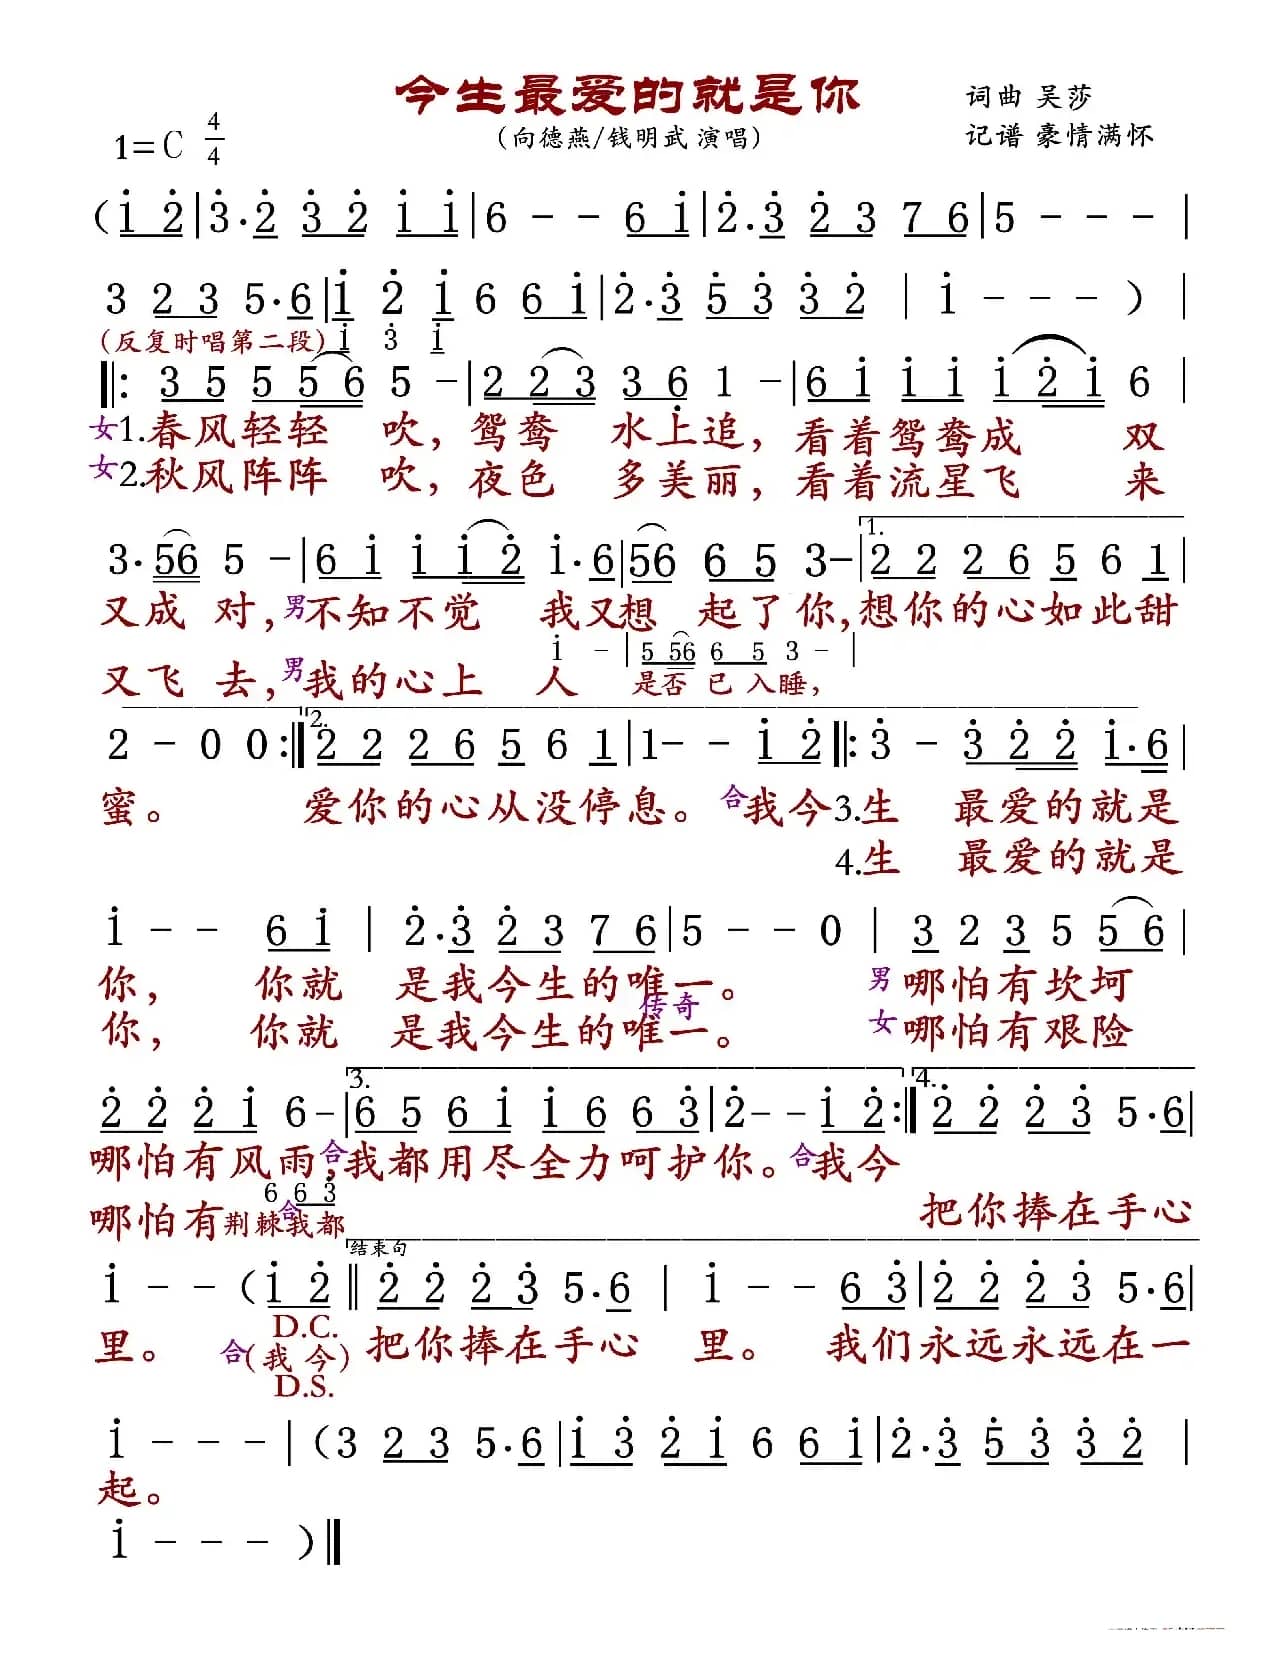 今生最爱的就是你
词曲 吴莎
(向德燕/钱明武 演唱)
记谱 豪情满怀
1=C 4/4
(i̇ 2̇|3̇·2̇ 3̇ 2̇ i̇ i̇|6 - - 6 i̇|2̇·3̇ 2̇ 3̇ 7 6|5 - - -|
3 2 3 5·6|i̇ 2̇ i̇ 6 6 i̇|2̇·3̇ 5̇ 3̇ 3̇ 2̇|i̇ - - -)|
(反复时唱第二段) i̇ 3̇ i̇
‖: 3 5 5 5 6 5 -|2 2 3 3 6̣ 1 -|6 i̇ i̇ i̇ i̇ 2̇ i̇ 6|
女1.春风轻轻 吹，鸳鸯 水上追，看着鸳鸯成 双
女2.秋风阵阵 吹，夜色 多美丽，看着流星飞 来
3·56 5 -|6 i̇ i̇ i̇ 2̇ i̇·6|56 6 5 3-|1. 2 2 2 6 5 6 1|
又成 对，男不知不觉 我又想 起了你,想你的心如此甜
i̇ -|5 56 6 5 3 -|
又飞 去，男我的心上 人 是否 已 入睡，
2 - 0 0:‖2. 2 2 2 6 5 6 1|1- - i̇ 2̇‖: 3̇ - 3̇ 2̇ 2̇ i̇·6|
蜜。 爱你的心从没停息。合我今3.生 最爱的就是
4.生 最爱的就是
i̇ - - 6 i̇|2̇·3̇ 2̇ 3 7 6|5 - - 0|3 2 3 5 5 6|
你， 你就 是我今生的唯一。 男 哪怕有坎坷
传奇
你， 你就 是我今生的唯一。 女 哪怕有艰险
2̇ 2̇ 2̇ i̇ 6-|3. 6 5 6 i̇ i̇ 6 6 3̇|2̇- - i̇ 2̇:‖4. 2̇ 2̇ 2̇ 3̇ 5·6|
哪怕有风雨,合我都用尽全力呵护你。合我今
6 6 3̇
哪怕有荆棘合我都 把你捧在手心
i̇ - - (i̇ 2̇‖结束句 2̇ 2̇ 2̇ 3̇ 5·6|i̇ - - 6 3̇|2̇ 2̇ 2̇ 3̇ 5·6|
D.C.
里。 合(我今) 把你捧在手心 里。 我们永远永远在一
D.S.
i̇ - - -|(3 2 3 5·6|i̇ 3̇ 2̇ i̇ 6 6 i̇|2̇·3̇ 5̇ 3̇ 3̇ 2̇|
起。
i̇ - - -)‖